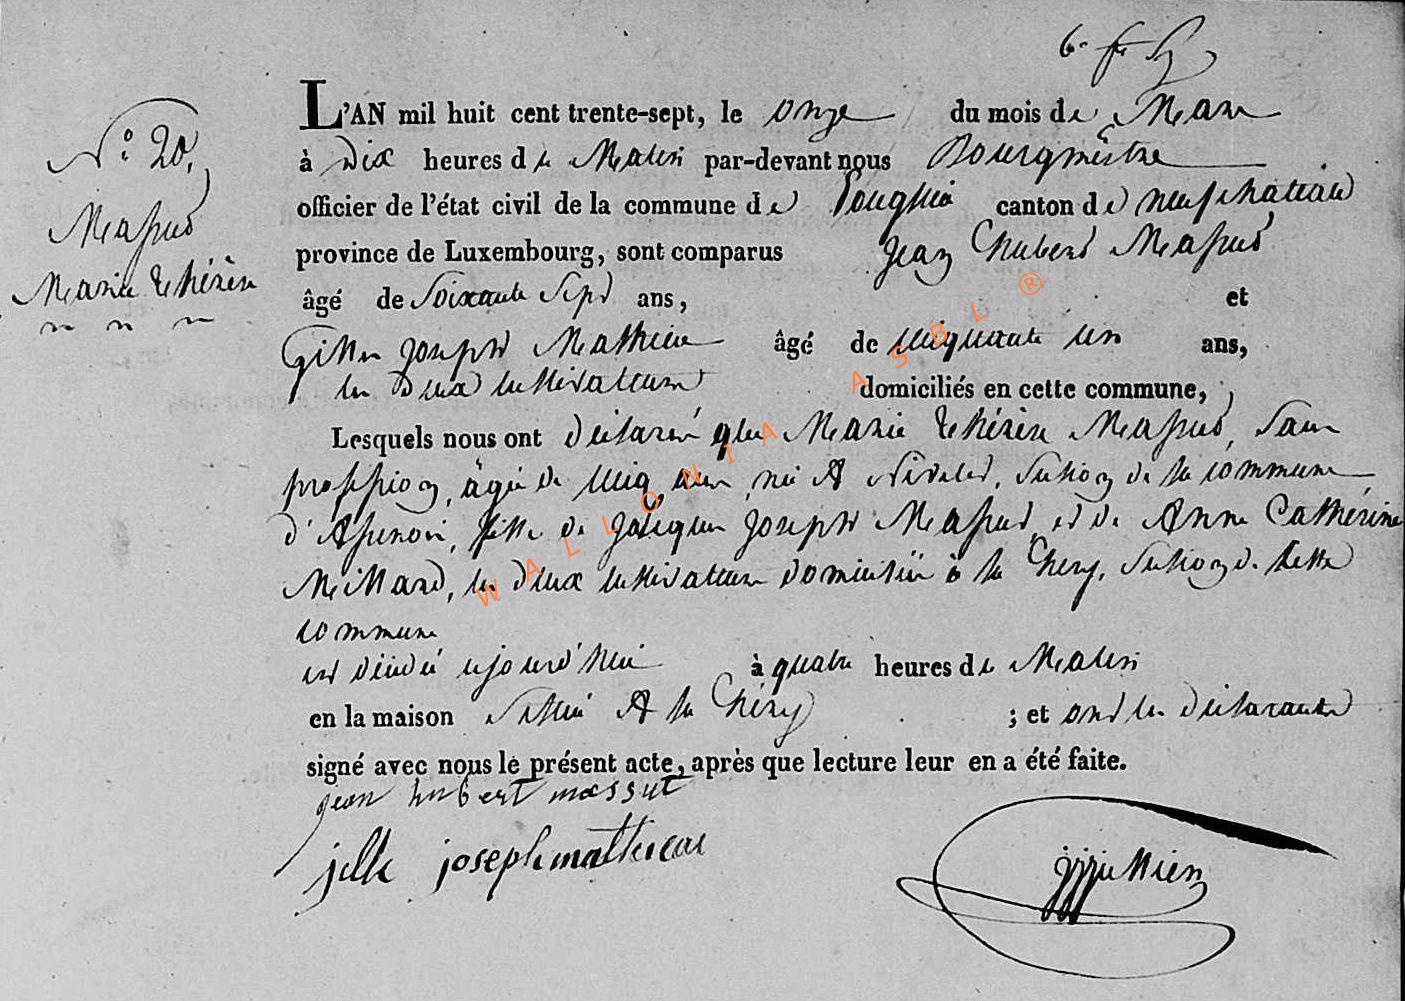 N.º 20.
Massut
Marie Thérèse
L'AN mil huit cent trente-sept, le onze du mois de Mars
à Dix heures de Matin par-devant nous Bourgmèstre
officier de l'état civil de la commune de canton de neufchateau
province de Luxembourg, sont comparus Jean hubert Massut
âgé de Soixante Sept ans, et
Gille joseph Mathieu âgé de cinquante un ans,
les Deux cultivateurs domiciliés en cette commune,
Lesquels nous ont déclaré que Marie thérèse Massut, Sans
profession, âgée de cinq ans, née A Nivelet, Section de la commune
d'Assenois, fille de jacques joseph Massut, et de Anne Cathérine
Millard, les deux cultivateurs domiciliés à la hery, Section de cette
commune
est décédé ujourd'hui à quatre heures de Matin
en la maison A la hery ; et ont les déclarants
signé avec nous le présent acte, après que lecture leur en a été faite.
jean hubert massut
jille joseph mathieu
WALLONIA ASBL ®